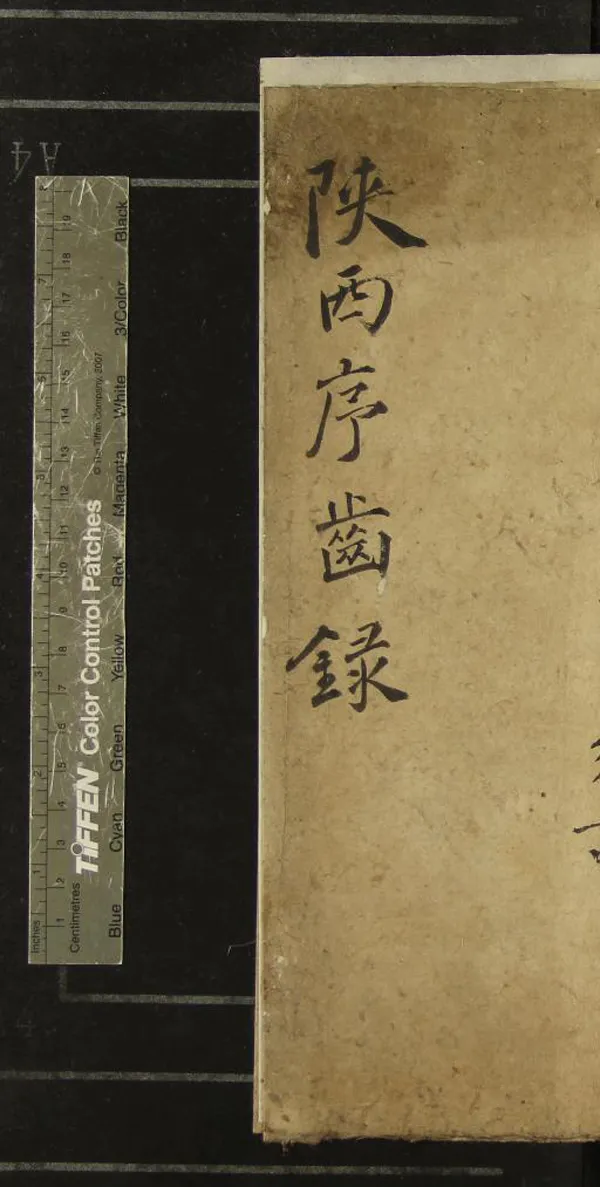 陝西序齒錄
A4
Inches 1 2 3 4 5 6 7
Centimetres 1 2 3 4 5 6 7 8 9 10 11 12 13 14 15 16 17 18 19
TIFFEN® Color Control Patches
© The Tiffen Company, 2007
Blue Cyan Green Yellow Red Magenta White 3/Color Black